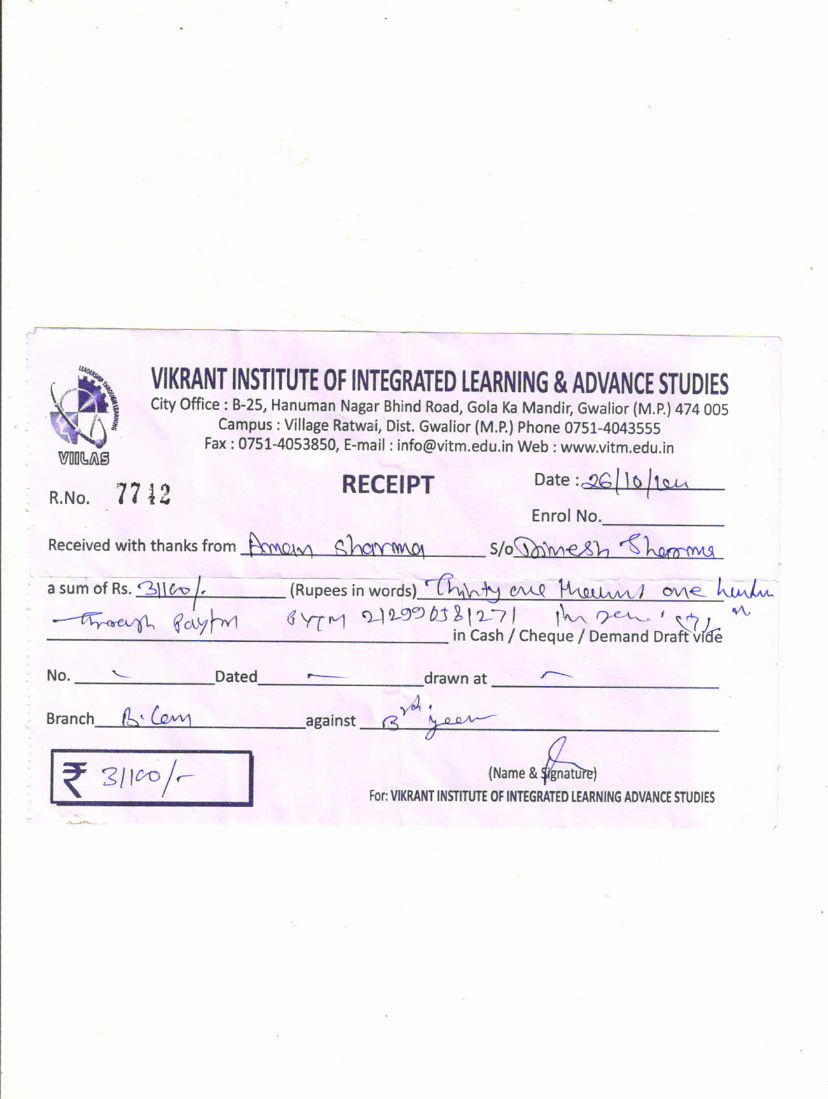 LEADERSHIP THROUGH LEARNING
VIILAS
VIKRANT INSTITUTE OF INTEGRATED LEARNING & ADVANCE STUDIES
City Office : B-25, Hanuman Nagar Bhind Road, Gola Ka Mandir, Gwalior (M.P.) 474 005
Campus : Village Ratwai, Dist. Gwalior (M.P.) Phone 0751-4043555
Fax : 0751-4053850, E-mail : info@vitm.edu.in Web : www.vitm.edu.in
R.No. 7742 RECEIPT Date : 26/10/
Enrol No.
Received with thanks from Aman Sharma S/o Dinesh Sharma
a sum of Rs. 31100/- (Rupees in words) Thirty one one
through Paytm PYTM 212990581271
in Cash / Cheque / Demand Draft vide
No. Dated drawn at
Branch B.Com against 3rd year
₹ 31100/-
(Name & Signature)
For: VIKRANT INSTITUTE OF INTEGRATED LEARNING ADVANCE STUDIES